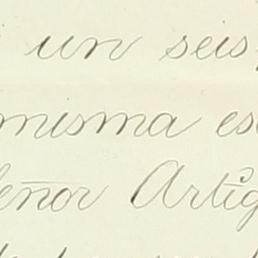 un seis
misma es
eñor Artig